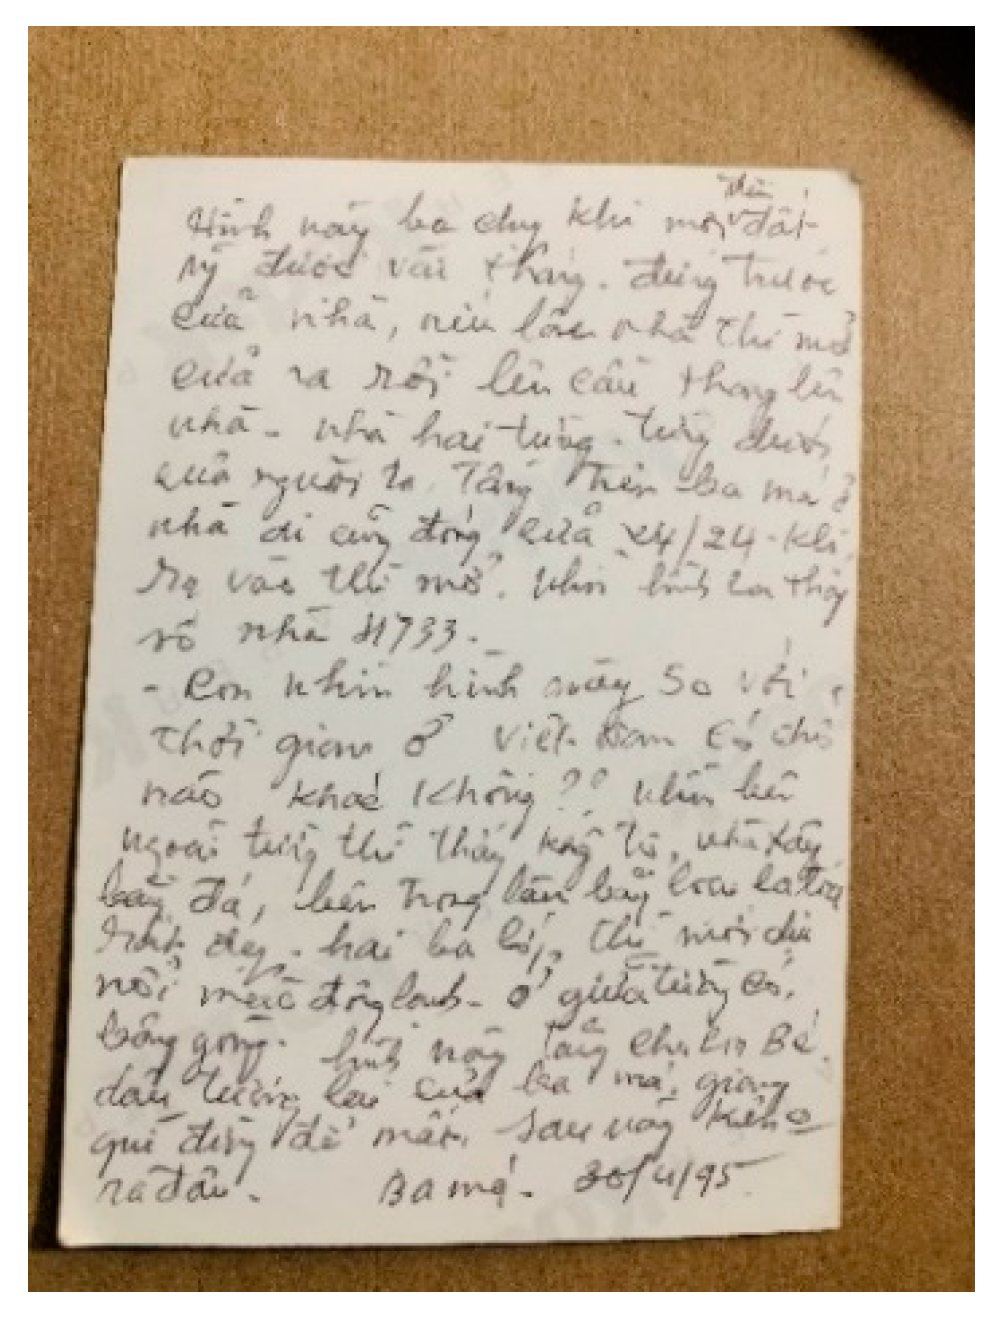 Hình này ba chụp khi mới đến đất
Mỹ được vài tháng. đứng trước
cửa nhà, nếu lên nhà thì mở
cửa ra rồi lên cầu thang lên
nhà - nhà hai từng. từng dưới
của người ta. Tầng trên ba má ở
nhà đi cũng đóng cửa 24/24 - khi
ra vào thì mở. nhìn hình ta thấy
số nhà 4733.
- Con nhìn hình này so với
thời gian ở Việt Nam có chỗ
nào khác không?? nhìn bên
ngoài tường thì thấy, nhà xây
bằng đá, bên trong làm bằng
rất đẹp. hai ba lớp, thì mới chịu
nổi mùa đông lạnh - ở giữa tường có
bông gòng. hình này tặng cho con Bé
dâu tương lai của ba má. giang
quí đừng để mất. sau này kiếm o
ra đâu. Ba má. 30/4/95